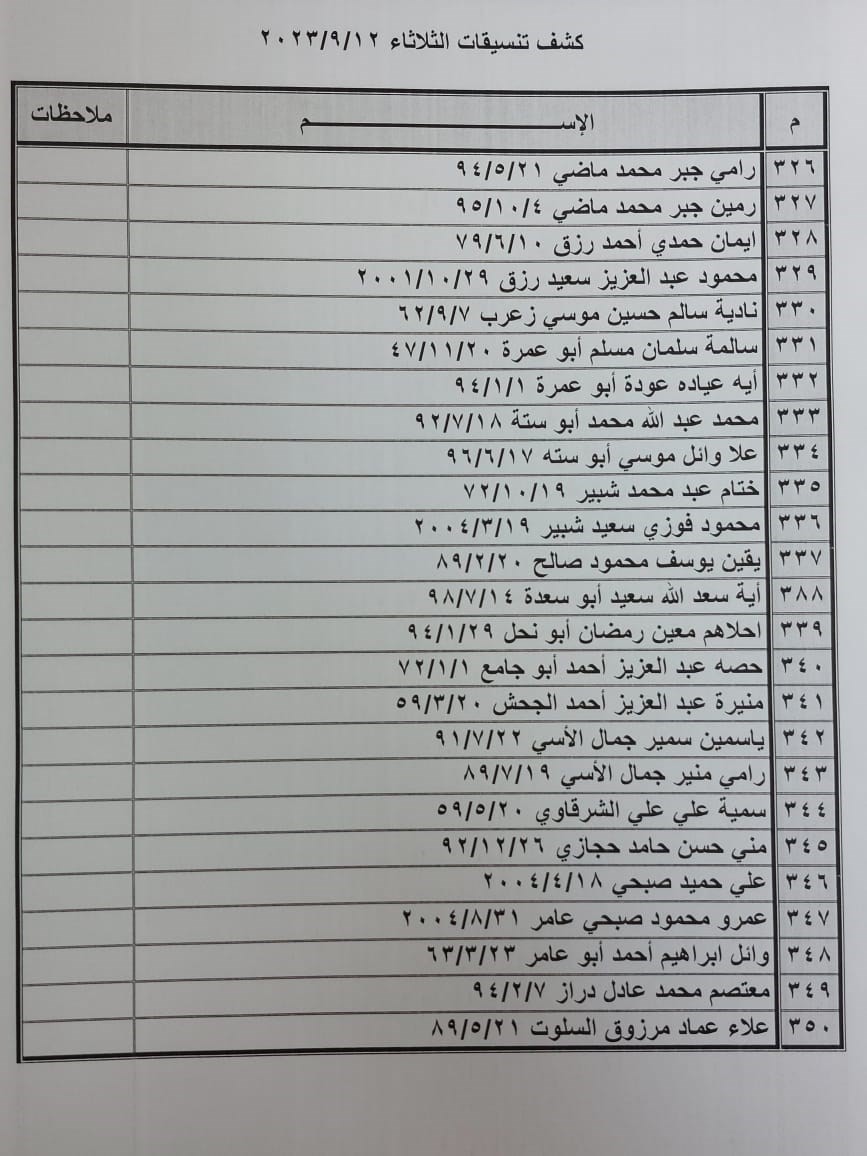 كشف تنسيقات الثلاثاء ٢٠٢٣/٩/١٢
م الإســـــــــم ملاحظات
٣٢٦ رامي جبر محمد ماضي ٩٤/٥/٢١
٣٢٧ رمين جبر محمد ماضي ٩٥/١٠/٤
٣٢٨ ايمان حمدي أحمد رزق ٧٩/٦/١٠
٣٢٩ محمود عبد العزيز سعيد رزق ٢٠٠١/١٠/٢٩
٣٣٠ نادية سالم حسين موسي زعرب ٦٢/٩/٧
٣٣١ سالمة سلمان مسلم أبو عمرة ٤٧/١١/٢٠
٣٣٢ أيه عياده عودة أبو عمرة ٩٤/١/١
٣٣٣ محمد عبد الله محمد أبو ستة ٩٢/٧/١٨
٣٣٤ علا وائل موسي أبو سته ٩٦/٦/١٧
٣٣٥ ختام عبد محمد شبير ٧٢/١٠/١٩
٣٣٦ محمود فوزي سعيد شبير ٢٠٠٤/٣/١٩
٣٣٧ يقين يوسف محمود صالح ٨٩/٢/٢٠
٣٨٨ أية سعد الله سعيد أبو سعدة ٩٨/٧/١٤
٣٣٩ احلاهم معين رمضان أبو نحل ٩٤/١/٢٩
٣٤٠ حصه عبد العزيز أحمد أبو جامع ٧٢/١/١
٣٤١ منيرة عبد العزيز أحمد الجحش ٥٩/٣/٢٠
٣٤٢ ياسمين سمير جمال الأسي ٩١/٧/٢٢
٣٤٣ رامي منير جمال الأسي ٨٩/٧/١٩
٣٤٤ سمية علي علي الشرقاوي ٥٩/٥/٢٠
٣٤٥ مني حسن حامد حجازي ٩٢/١٢/٢٦
٣٤٦ علي حميد صبحي ٢٠٠٤/٤/١٨
٣٤٧ عمرو محمود صبحي عامر ٢٠٠٤/٨/٣١
٣٤٨ وائل ابراهيم أحمد أبو عامر ٦٣/٣/٢٣
٣٤٩ معتصم محمد عادل دراز ٩٤/٢/٧
٣٥٠ علاء عماد مرزوق السلوت ٨٩/٥/٢١